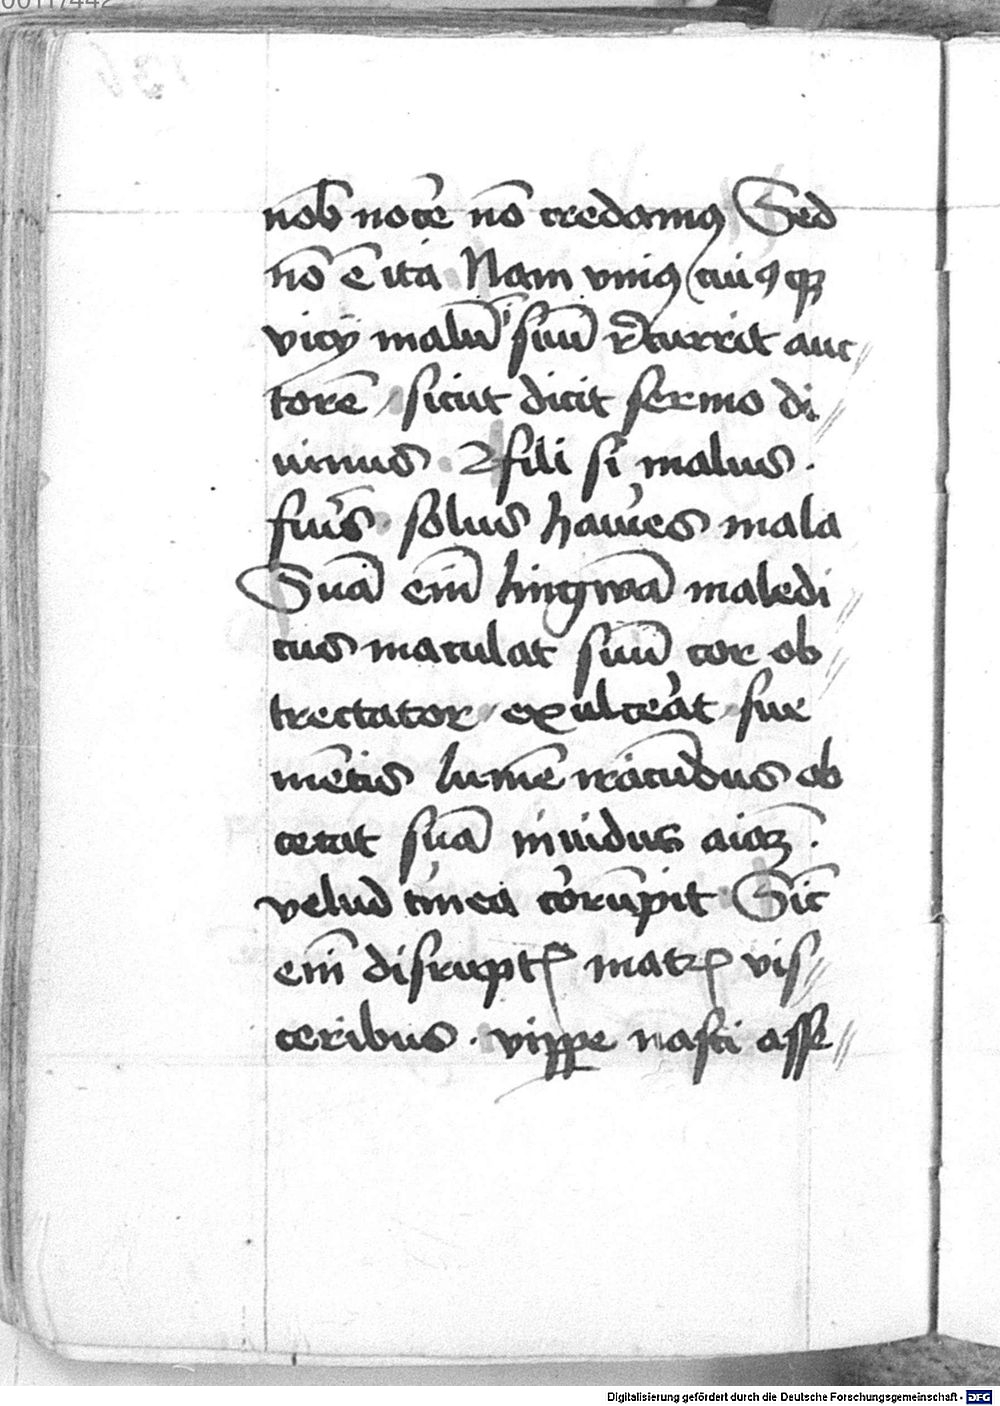 nob̄ noce᷑ nō credamꝰ Sed
nō ē ita Nam vniꝰ cuiꝰqꝫ
vicij malū suū r̄currit auc
torē sicut dicit sermo di
uinus ꝛ fili si malus .
fueꝭs solus hauries mala
Suā eīm lingwā maledi
cus maculat suū cor ob
trectator exulcerat sue
mētis lumē iracūdus ob
cecat suā inuidus aīaꝫ .
velud tinea corrūpit Sic̄
eīm disruptꝭ matꝛꝭ vis
ceribus . vippe nasci asse
Digitalisierung gefördert durch die Deutsche Forschungsgemeinschaft - DFG